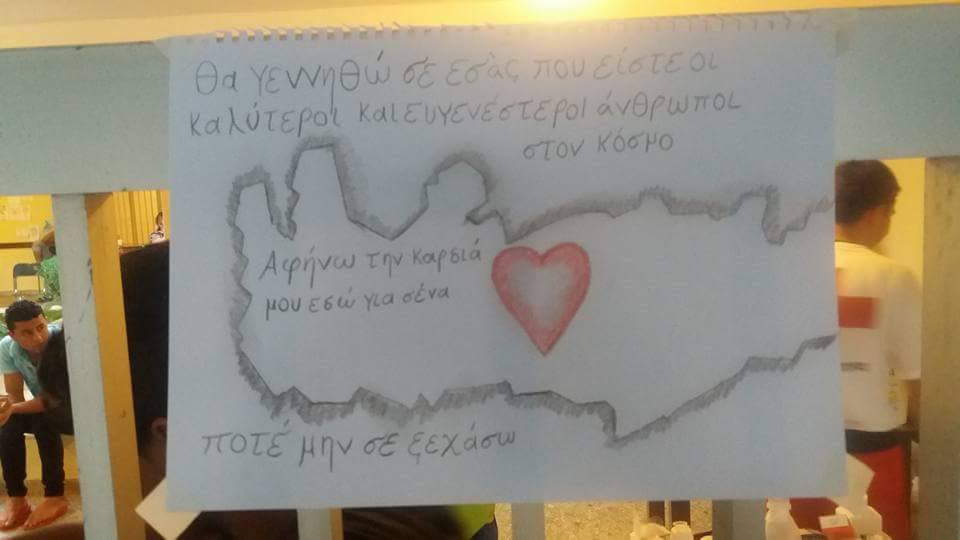 Θα γεννηθώ σε εσάς που είστε οι
καλύτεροι και ευγενέστεροι άνθρωποι
στον κόσμο
Αφήνω την καρσιά
μου εσώ για σένα
ποτέ μην σε ξεχάσω